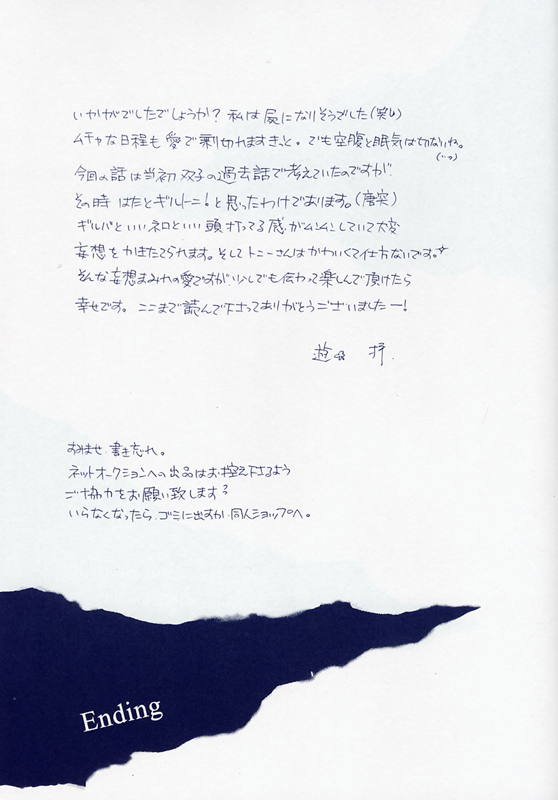 いかがでしたでしょうか？私は屍になりそうでした(笑)
ムチャな日程も愛で乗り切れますきっと。でも空腹と眠気は切ないね。
今回の話は当初双子の過去話で考えていたのですが
その時はたとギルトニ！と思ったわけであります。(唐突)
ギルバといいネロといい頭打ってる感がムンムンしていて大変
妄想をかきたてられます。そしてトニーさんはかわいくて仕方ないです。
そんな妄想まみれの愛ですが、少しでも伝わって楽しんで頂けたら
幸せです。ここまで読んで下さってありがとうございましたー！
すみませ、書き忘れ。
ネットオークションへの出品はお控え下さるよう
ご協力をお願い致します
いらなくなったら、ゴミに出すか、同人ショップへ。
Ending